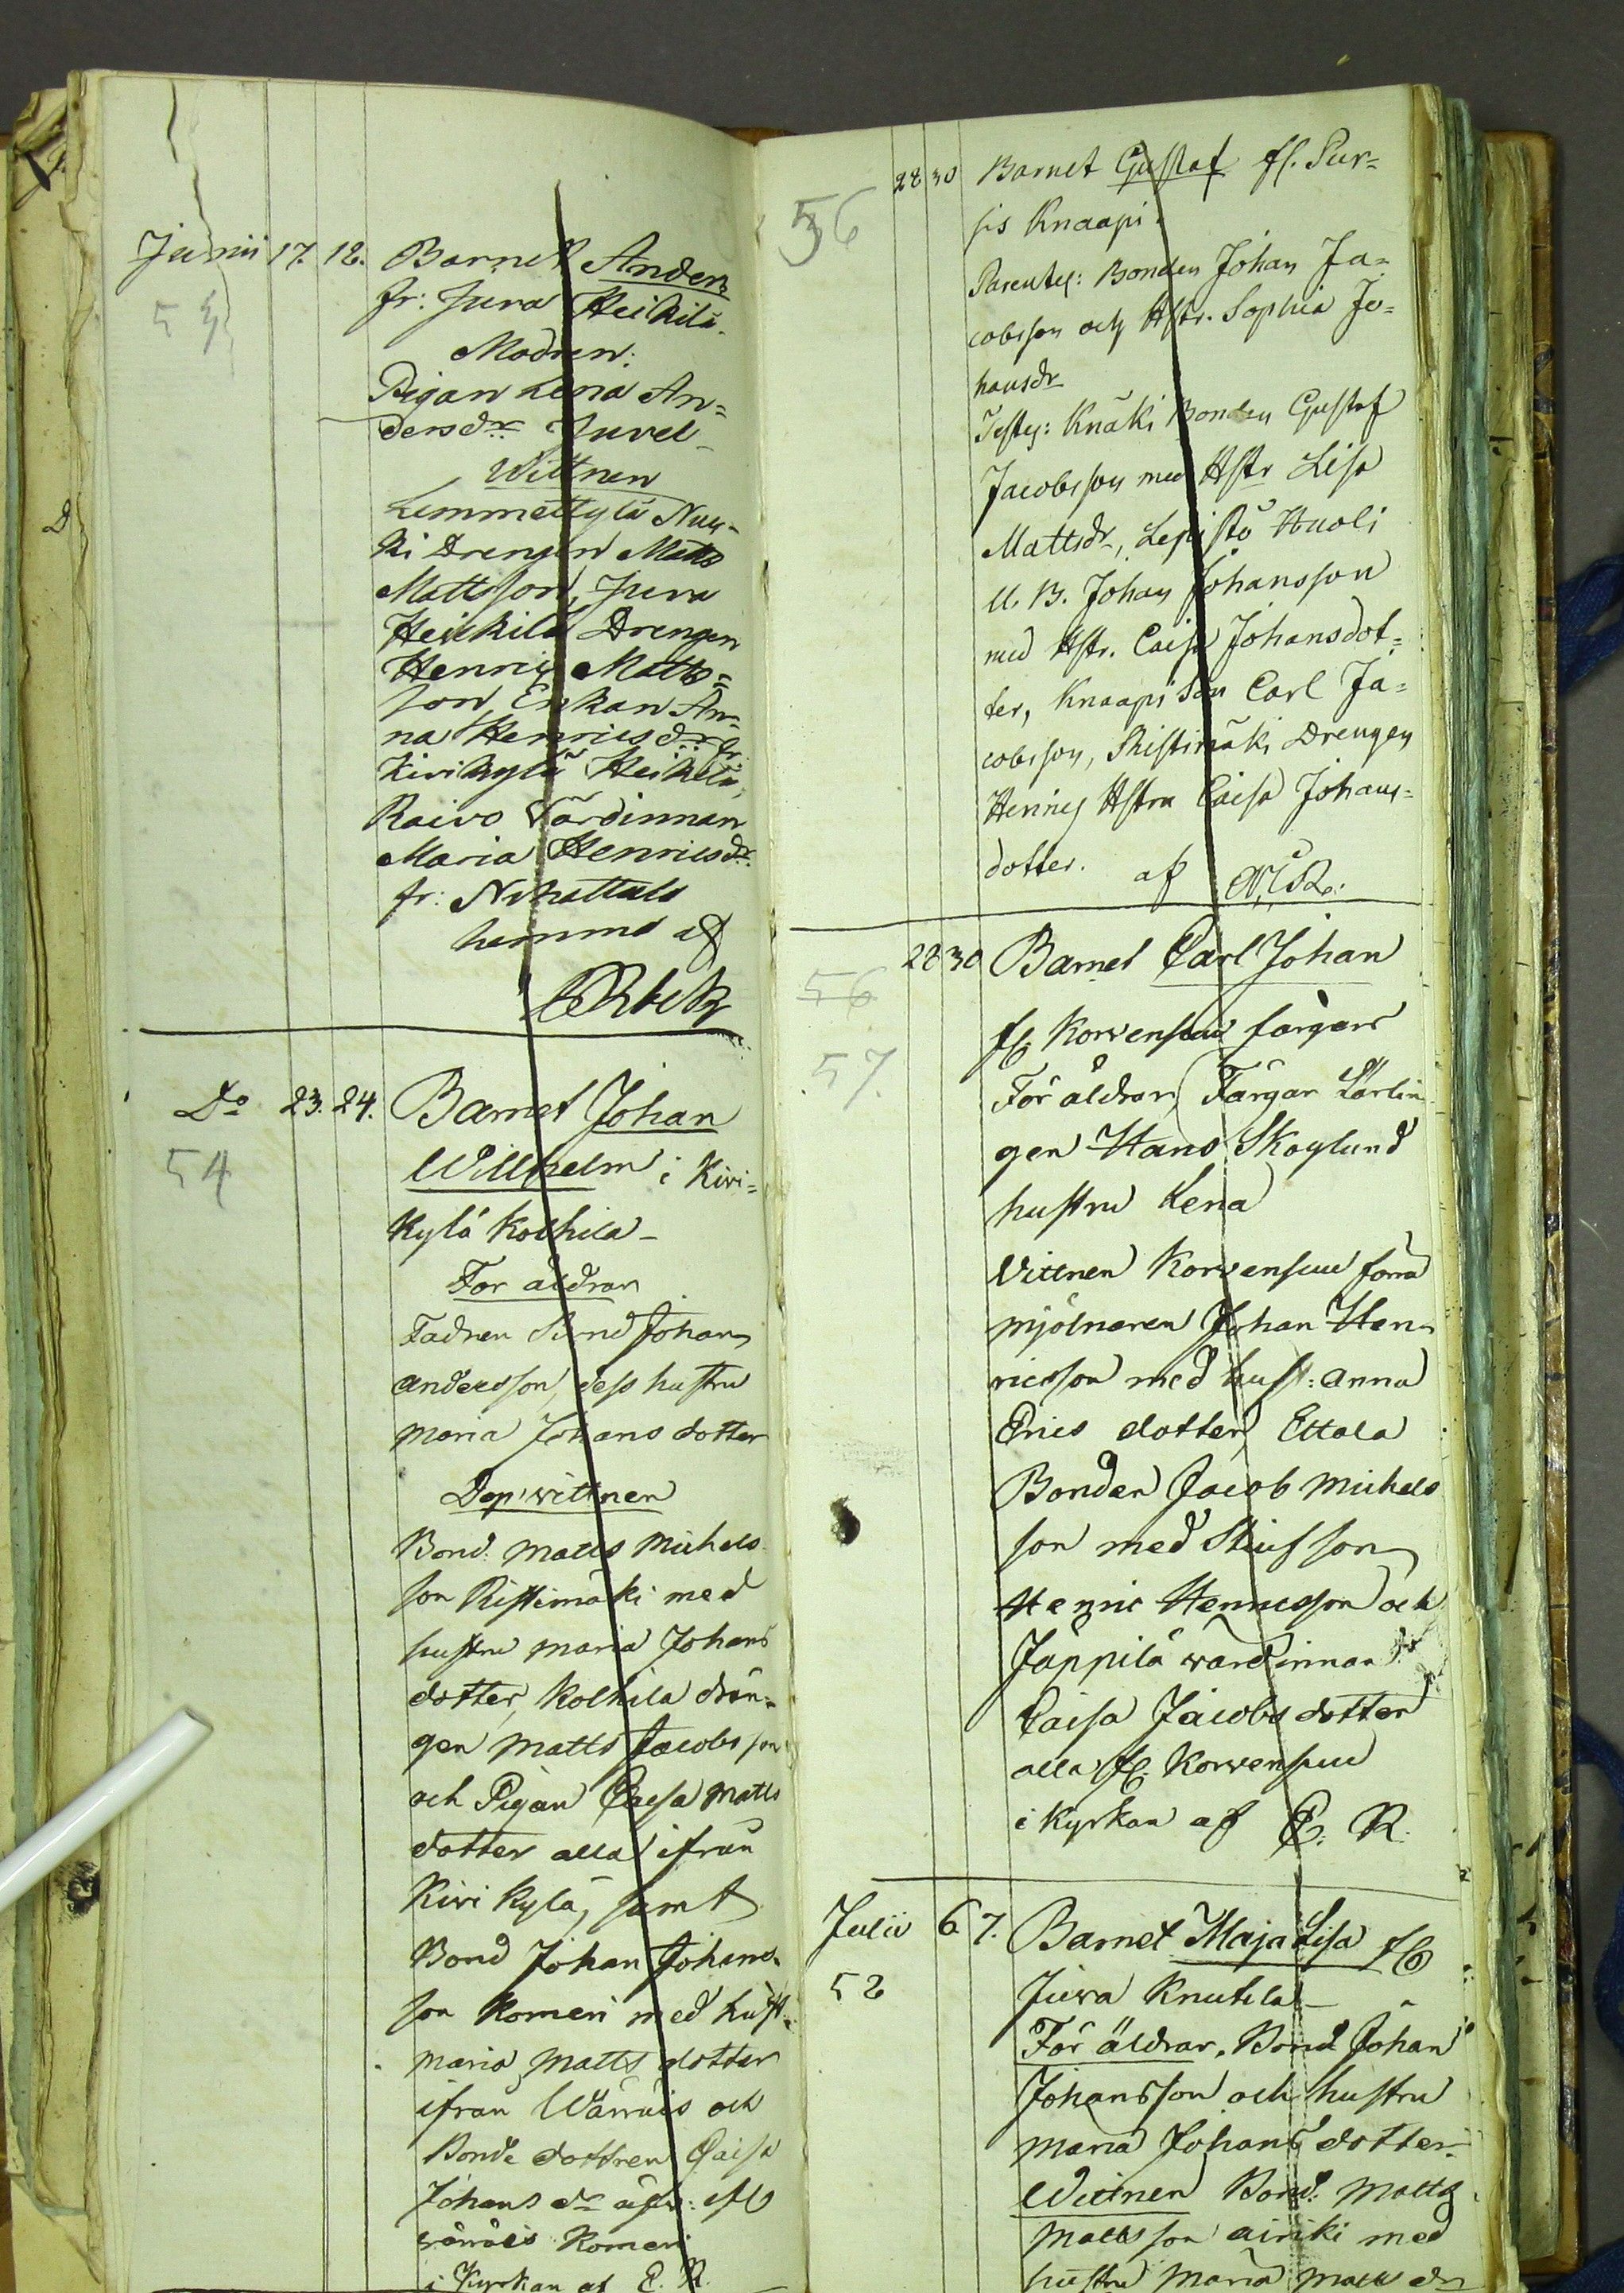 Junii 17. 18. Barnet Anders
fr: Juva Heikilä.
Modren:
Pigan Lena An=
dersdr Juvel
Wittnen
Lemmettylä
ki Drengen Matts
Mattsson, Juva
Heikilä Drengen
Henric Matts=
son, Enkan An=
na Henricsdr fr.
Kivikylä Heikilä,
Raivo Värdinnan
Maria Henricsdr
fr: Nihattula
hemma af
54
Do 23. 24. Barnet Johan
54
Willhelm i Kivi=
kylä Kolhila -
För äldrar
Fadren Bond Johan
Andersson, dess hustru
Maria Johans dotter
Dop wittnen
Bond: Matts Michels
son Ristimäki med
hustru Maria Johans
dotter, Kolhila drän=
gen Matts Jacobsson
och Pigan Caisa Matts
dotter alla ifrån
Kivi kylä, samt
Bond Johan Johans=
son Romeri med hust:
Maria Matts dotter
ifrån Wärräis och
Bonde dottren Caisa
Johans dr
wärräis Romeri
i Kyrkan af E. R.
56
28 30 Barnet Gustaf fr. Sur=
sis Knaapi.
Parentes: Bonden Johan Ja=
cobsson och Hstr. Sophia Jo=
hansdr
Testes: Knäki Bonden Gustaf
Jacobsson med Hstr Lisa
Mattsdr, Lepistö Huoli
U. B. Johan Johansson
med Hstr. Caisa Johansdot=
ter, Knaapi Son Carl Ja=
cobsson, Ristimäki Drengen
Henrics Hstru Caisa Johans=
dotter. af
56
57.
28 30 Barnet Carl Johan
fr. Korvensuu färgare
För äldrar, Färgar Lärlin
gen Hans Skoglund
hustru Lena
Vittnen Korvensuu förra
mjölnaren Johan Hen=
ricsson med hust: Anna
Erics dotter, Ettala
Bonden Jacob Michels
son med Stiufson
Henric Henricsson och
Jäppilä värdinnan
Caisa Jacobs dotter
alla fr. Korvensuu
i Kyrkan af E. R.
Julii 6 7. Barnet Maja Lisa fr
58
Juva Knutila -
För äldrar, Bond Johan
Johansson och hustru
Maria Johans dotter -
Wittnen Bond: Matts
Mattsson Airiki med
hustru Maria Matts dr